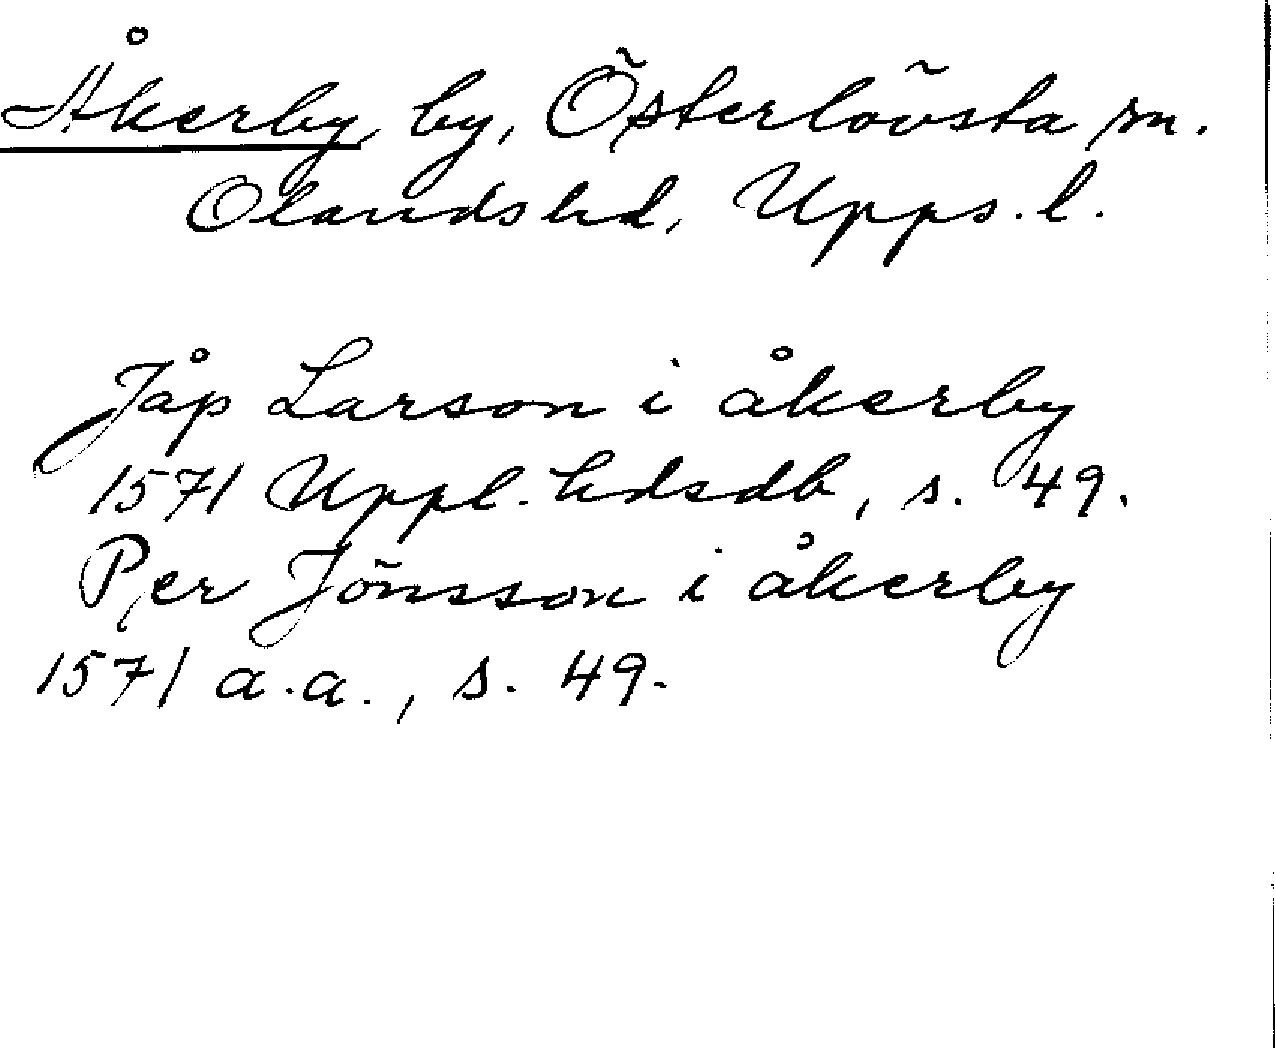 Åkerby by, Österlövsta sn.
Olands hd, Upps. l.
Jåp Larson i åkerby
1571 Uppl. hdsdb, s. 49.
Per Jönsson i åkerby
1571 a.a., s. 49.